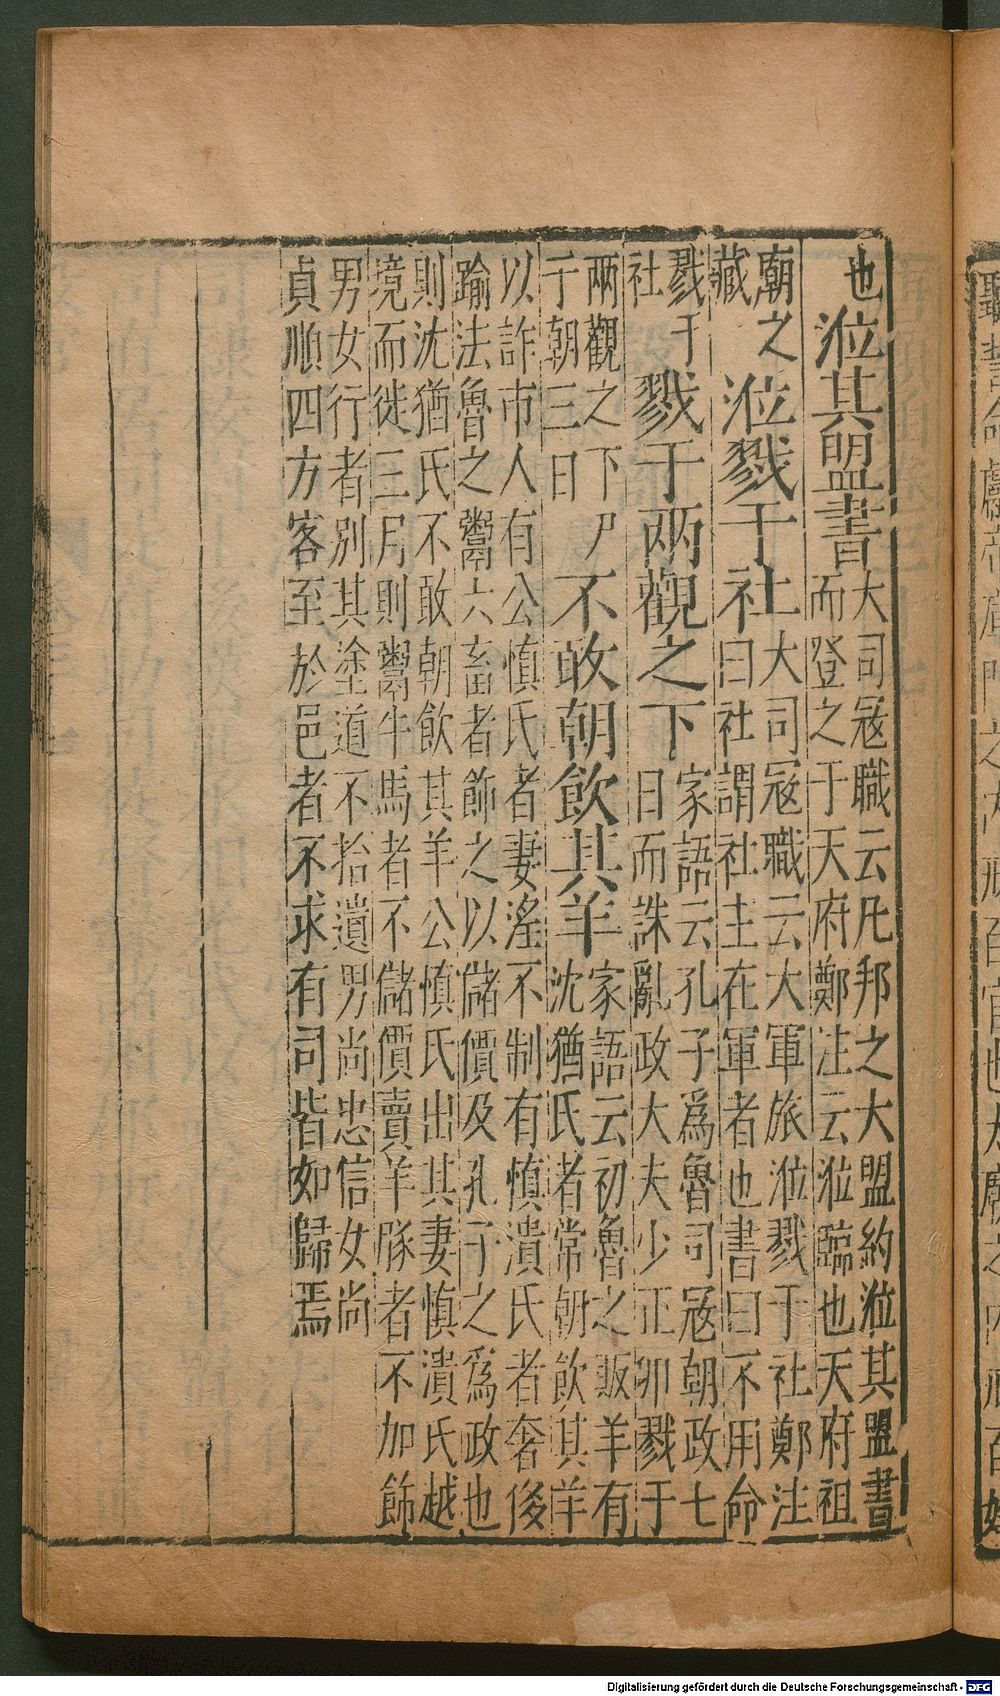 也
涖其盟書
大司冦職云凡邦之大盟約涖其盟書
而登之于天府鄭注云涖臨也天府祖
廟之
藏
涖戮于社
大司冦職云大軍旅涖戮于社鄭注
曰社謂社主在軍者也書曰不用命
戮于
社
戮于两觀之下
家語云孔子爲魯司冦朝政七
日而誅亂政大夫少正卯戮于
两觀之下尸
于朝三日
不敢朝飲其羊
家語云初魯之販羊有
沈猶氏者常朝飲其羊
以詐市人有公慎氏者妻淫不制有慎潰氏者奢侈
踰法魯之鬻六畜者飾之以儲價及孔子之爲政也
則沈猶氏不敢朝飲其羊公慎氏出其妻慎潰氏越
境而徙三月則鬻牛馬者不儲價賣羊豚者不加飾
男女行者別其塗道不拾遺男尚忠信女尚
貞順四方客至於邑者不求有司皆如歸焉
Digitalisierung gefördert durch die Deutsche Forschungsgemeinschaft - DFG